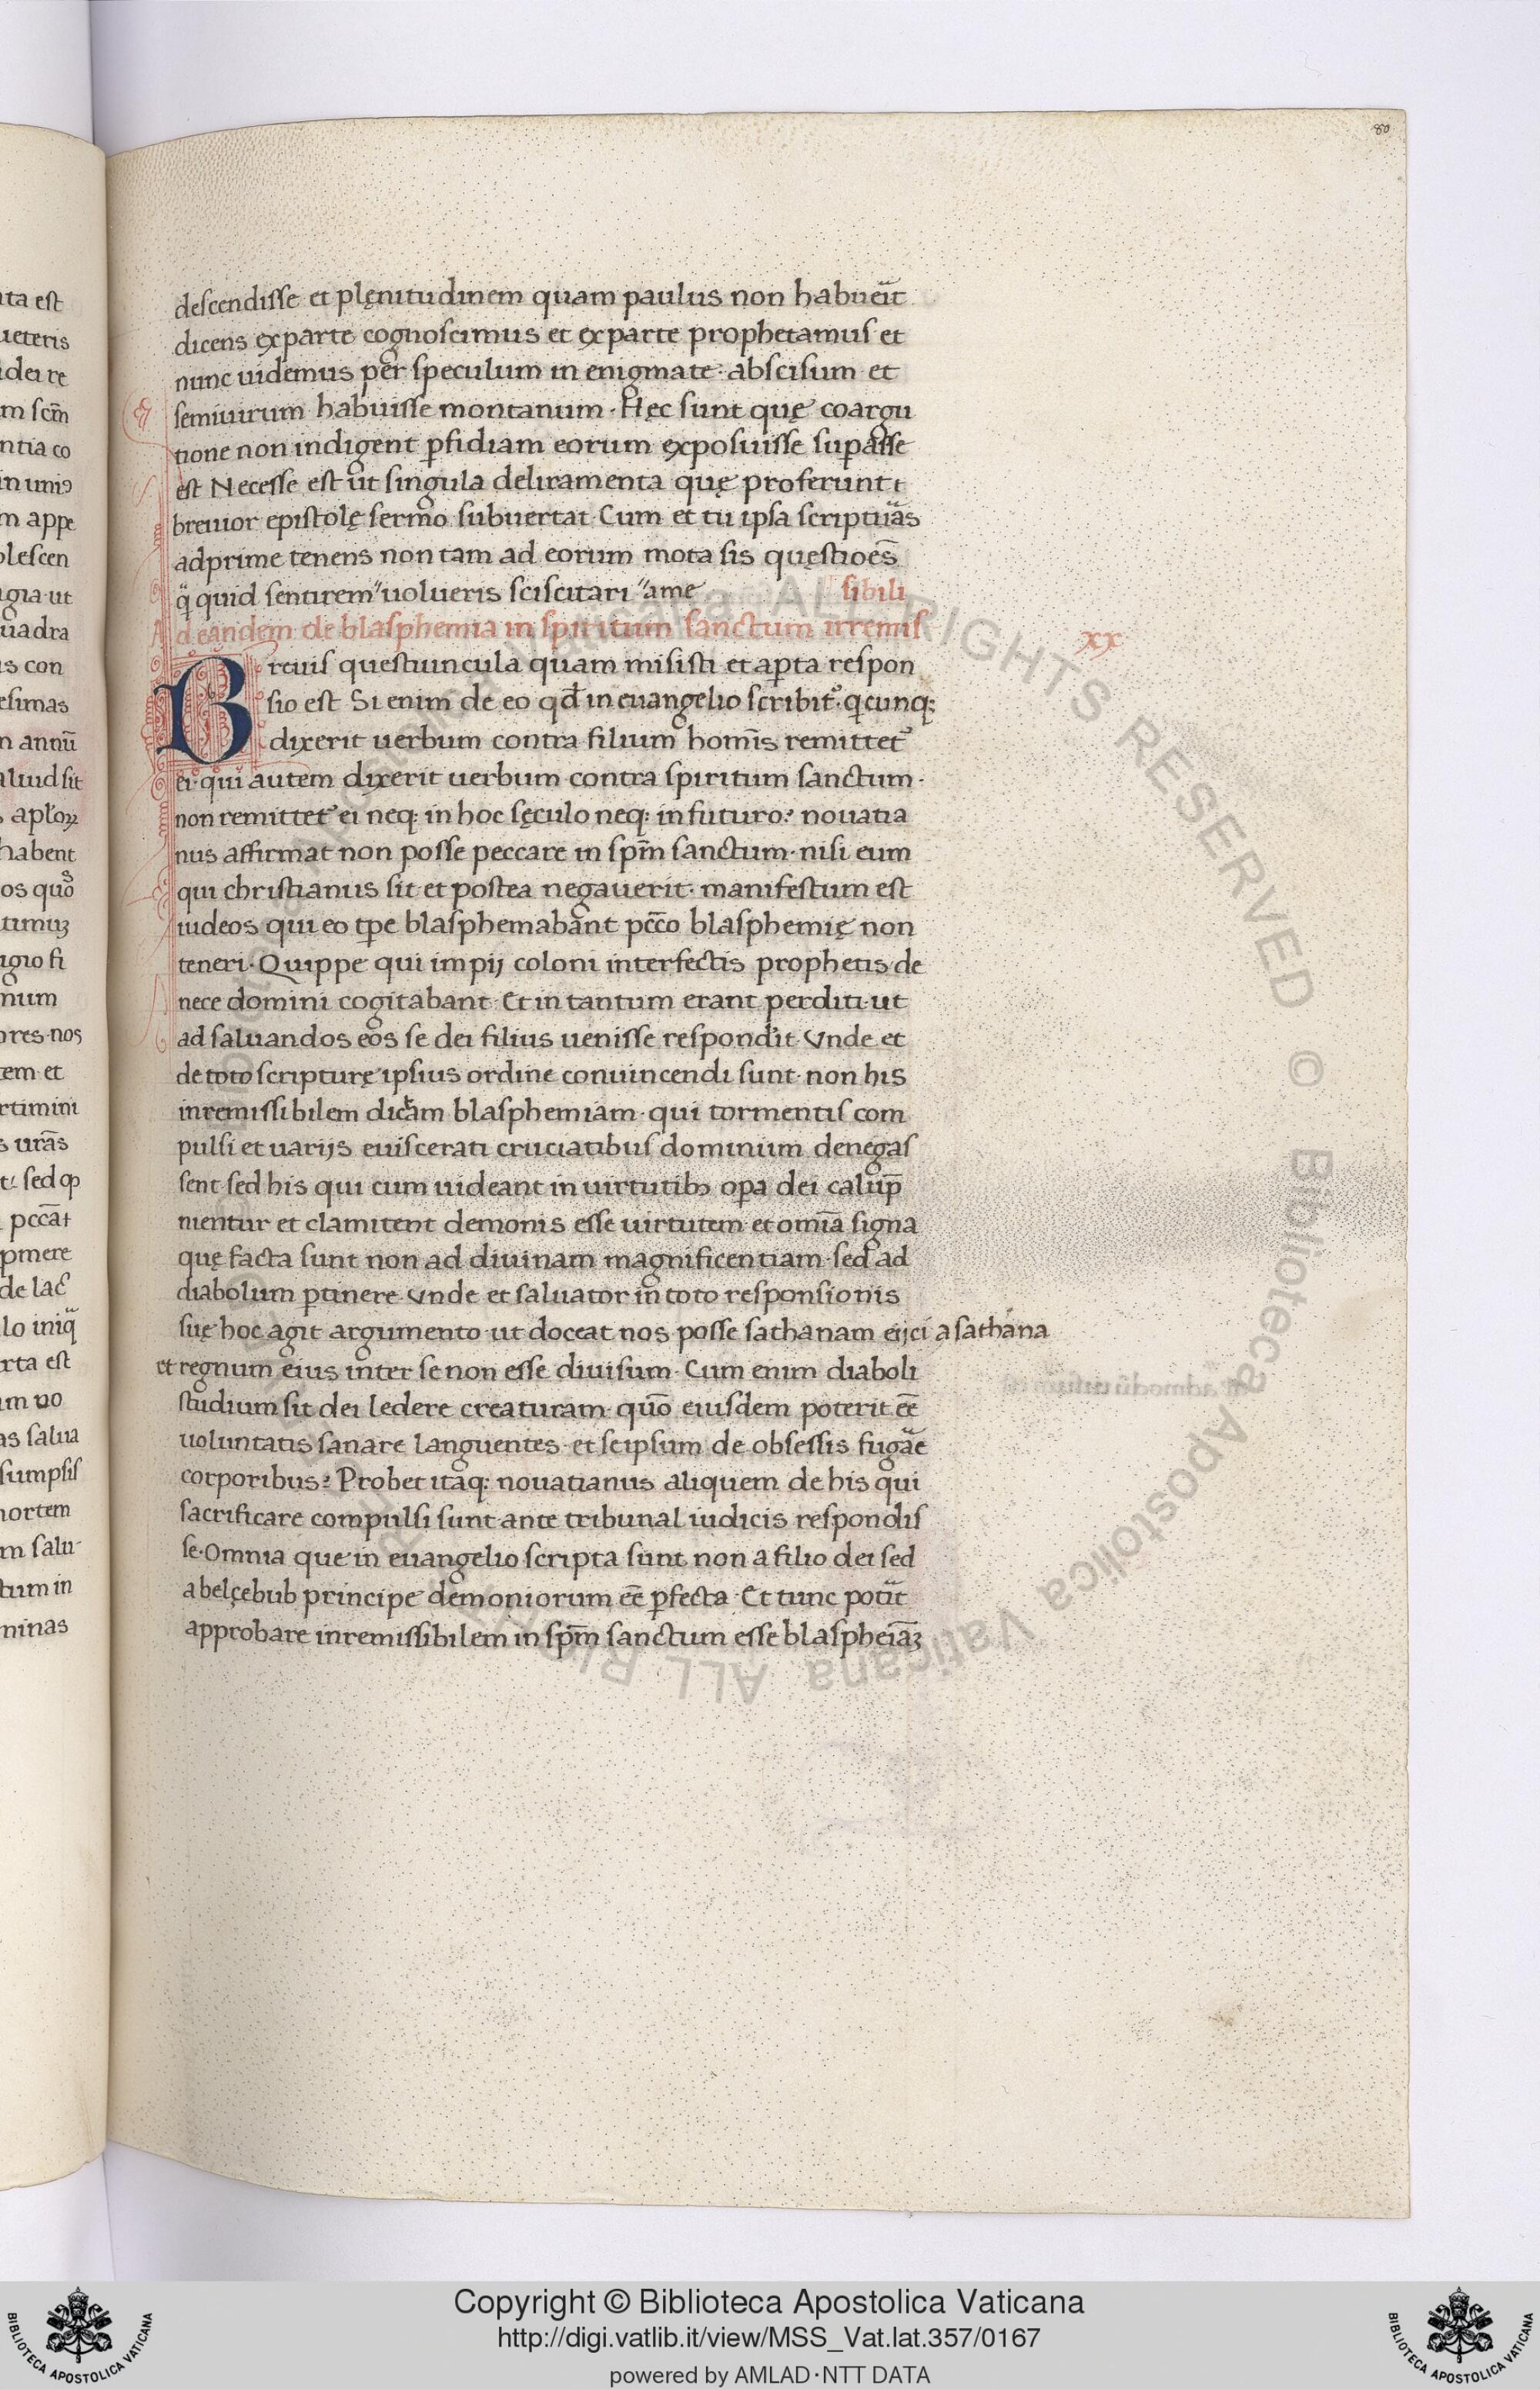 80
descendisse et plęnitudinem quam paulus non habueīt
dicens ex parte cognoscimus et ex parte prophetamus et
nunc uidemus per speculum in enigmate· abscisum et
semiuirum habuisse montanum· Hęc sunt quę coargu
tione non indigent ꝑfidiam eorum exposuisse suꝑasse
est Necesse est ut singula deliramenta quę proferunt
breuior epistolę sermo subuertat· Cum et tu ipsa scriptuas
adprime tenens non tam ad eorum mota sis quęstioēs
q̈ quid sentirem uolueris sciscitari a me
sibili
Ad eandem de blasphemia in spiritum sanctum irremis
xx
Breuis questiuncula quam misisti et aꝑta respon
sio est Si enim de eo qd̄ in euangelio scribit᷒· q̄cunq:
dixerit uerbum contra filium homīs remittet᷒
ei· qui autem dixerit uerbum contra spiritum sanctum·
non remittet᷒ ei neq: in hoc sęculo neq: in futuro: nouatia
nus affirmat non posse peccare in spm̄ sanctum· nisi eum
qui christianus sit et postea negauerit· manifestum est
iudeos qui eo tꝑe blasphemabant pcc̄o blasphemię non
teneri· Quippe qui impij coloni interfectis prophetis de
nece domini cogitabant· Et in tantum erant perditi· ut
ad saluandos eos se dei filius uenisse respondit· Vnde et
de toto scripturę ipsius ordine conuincendi sunt· non his
inremissibilem dicam blasphemiam· qui tormentis com
pulsi et uarijs euiscerati cruciatibus dominum denegas
sent sed his qui cum uideant in uirtutibꝫ oꝑa dei calūp
nientur et clamitent demonis esse uirtutem et omīa signa
quę facta sunt non ad diuinam magnificentiam· sed ad
diabolum ꝑtinere· Vnde et saluator in toto responsionis
suę hoc agit argumento ut doceat nos posse sathanam eijci a sathana
et regnum eius inter se non esse diuisum· Cum enim diaboli
studium sit dei ledere creaturam· quō eiusdem poterit eē
uoluntatis sanare languentes· et seipsum de obsessis fugae
corporibus? Probet itaq: nouatianus aliquem de his qui
sacrificare compulsi sunt ante tribunal iudicis respondis
se· Omnia que in euangelio scripta sunt non a filio dei sed
a belçebub principe demoniorum eē ꝑfecta· Et tunc potīt
approbare inremissibilem in spm̄ sanctum esse blaspheīaꝫ
Copyright © Biblioteca Apostolica Vaticana
http://digi.vatlib.it/view/MSS_Vat.lat.357/0167
powered by AMLAD·NTT DATA